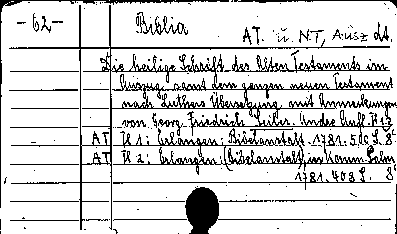 -62- Biblia
AT. u. NT, Ausz dt.
Die heilige Schrift des Alten Testaments im
Auszug samt dem ganzen neuen Testament
nach Luthers Übersetzung mit Anmerkungen
von Georg Friedrich Seiler. Andre Aufl.
AT Th 1: Erlangen: Bibelanstalt. 1781. 500 S. 8°
AT Th 2: Erlangen: (Bibelanstalt), in Komm. Palm
1781. 408 S. 8°